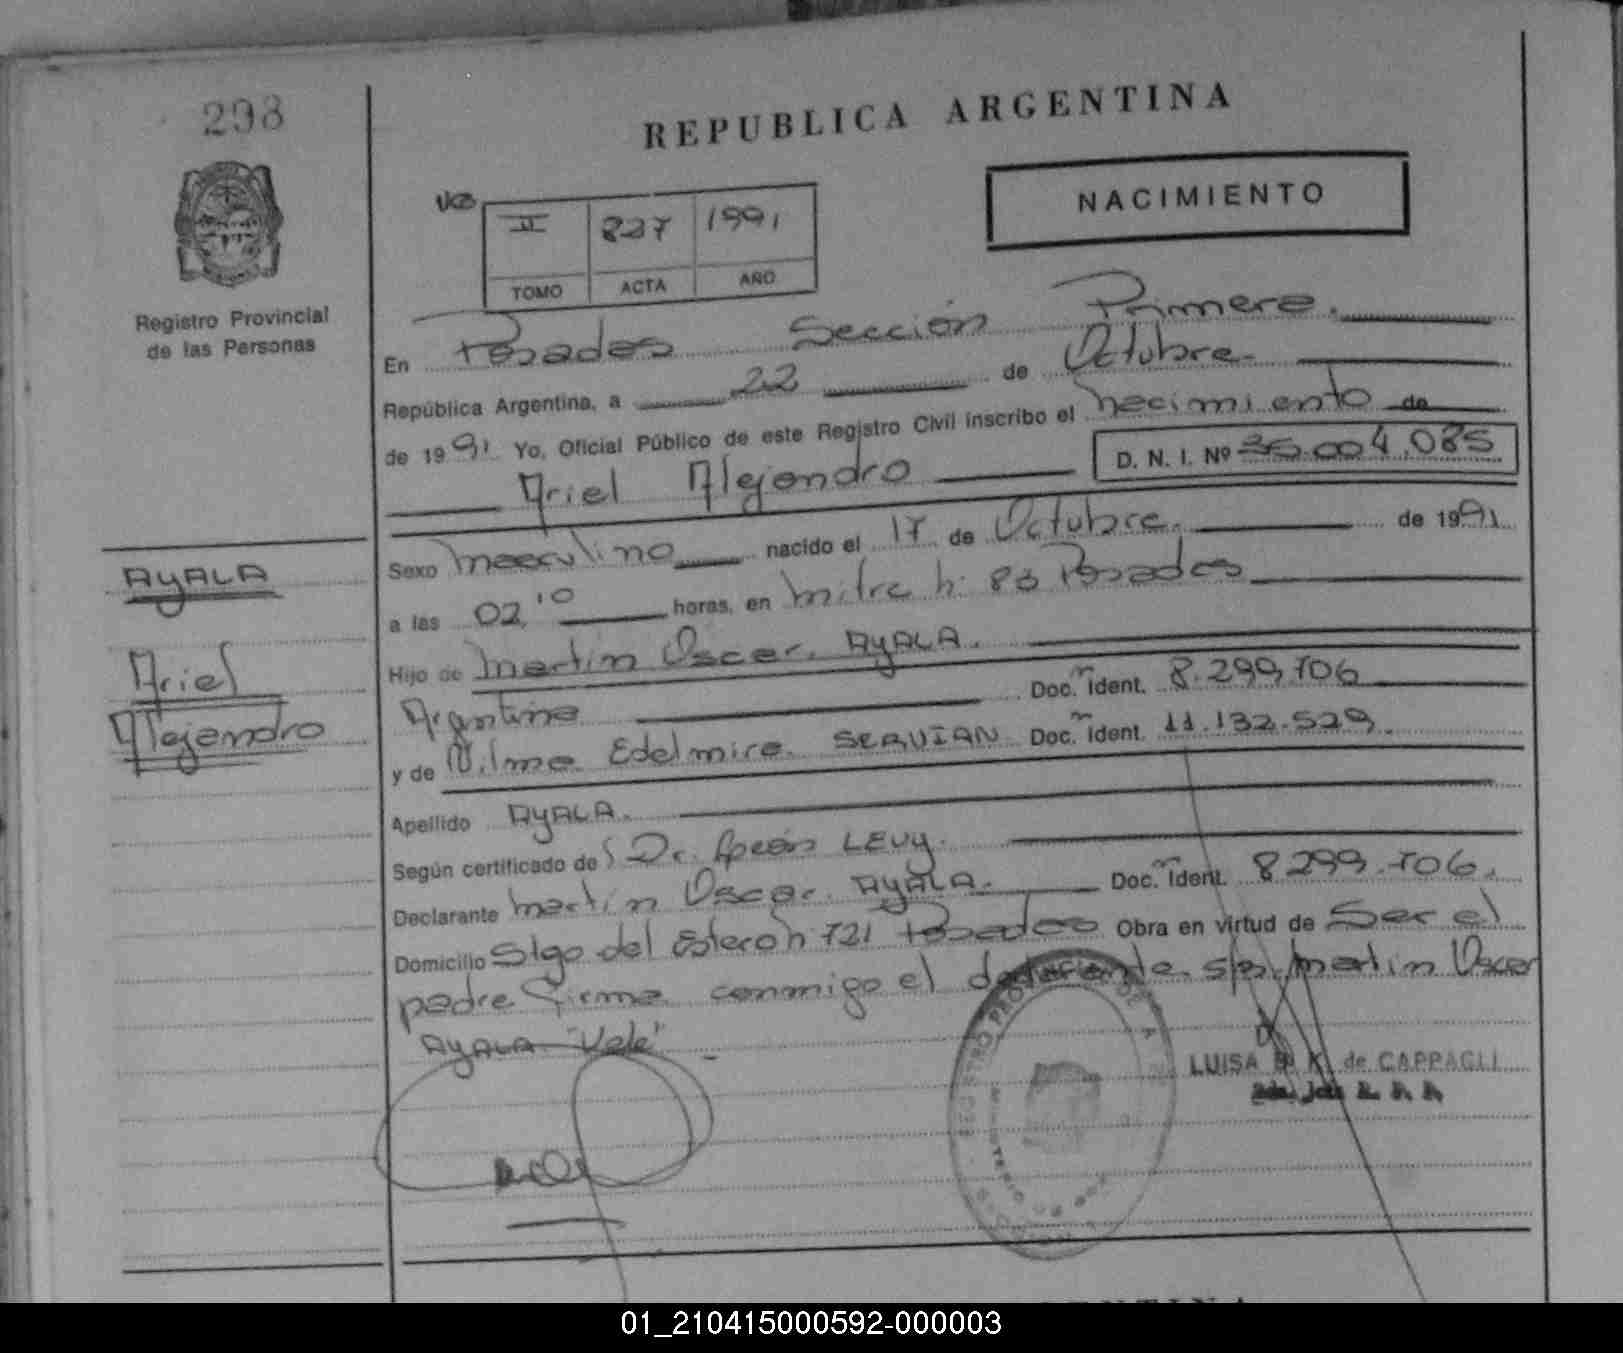 298
REPUBLICA ARGENTINA
NACIMIENTO
II 827 1991
TOMO ACTA AÑO
Registro Provincial
de las Personas
En Posadas Sección Primera.
República Argentina, a 22 de Octubre.
de 1991 Yo, Oficial Público de este Registro Civil inscribo el nacimiento de
D. N. I. Nº 35.004.085
Ariel Alejandro
Sexo masculino nacido el 17 de Octubre. de 1991
a las 02,10 horas, en Mitre n: 83 Posadas
Hijo de Martín Oscar. AYALA.
Argentino Doc. Ident. 8.299.706
y de Vilma Edelmira. SERVIAN Doc. Ident. 11.132.529.
Apellido AYALA.
Según certificado de Dr. LEVY.
Declarante Martín Oscar. AYALA. Doc. Ident. 8299.706.
Domicilio Stgo del Estero n 721 Posadas Obra en virtud de Ser el
padre firma conmigo el declarante. Martin Oscar
AYALA "Vale"
AYALA
Ariel
Alejandro
LUISA de CAPPAGLI
01_210415000592-000003